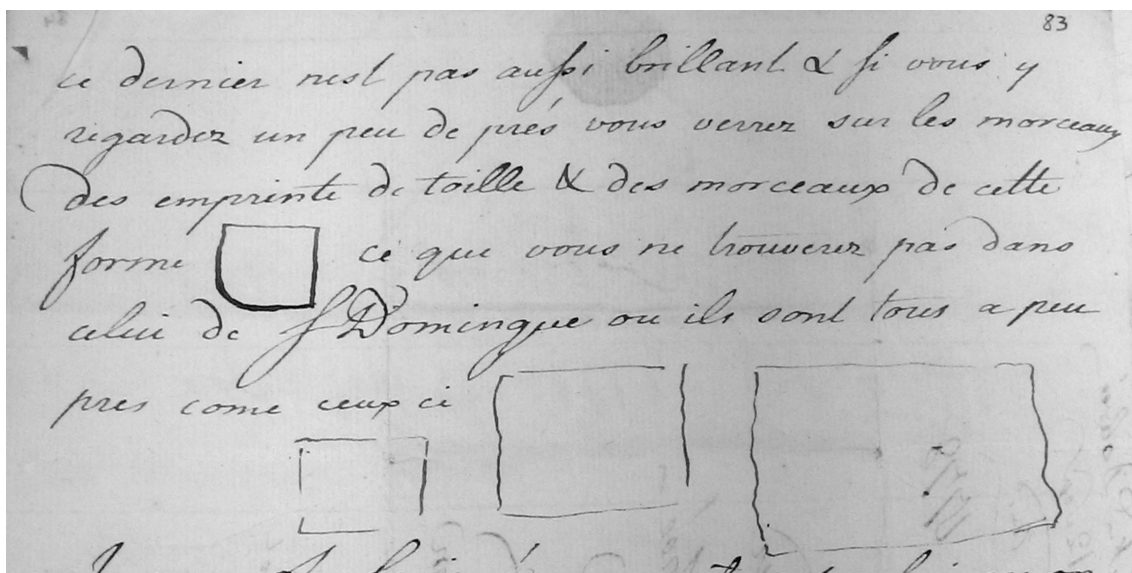 83
ce dernier nest pas aussi brillant & si vous y
regardez un peu de prés vous verrez sur les morceaux
des emprinte de toille & des morceaux de cette
forme ce que vous ne trouverez pas dans
celui de S Domingue ou ils sont tous a peu
pres come ceux ci